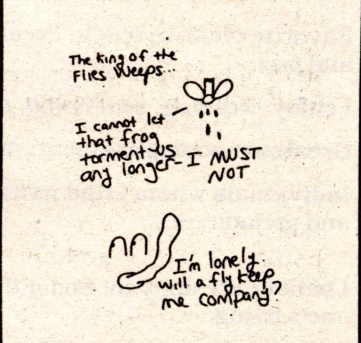 The King of the
Flies Weeps...
I cannot let
that frog
torment us
any longer- I MUST
NOT
I'm lonely.
will a fly keep
me company?